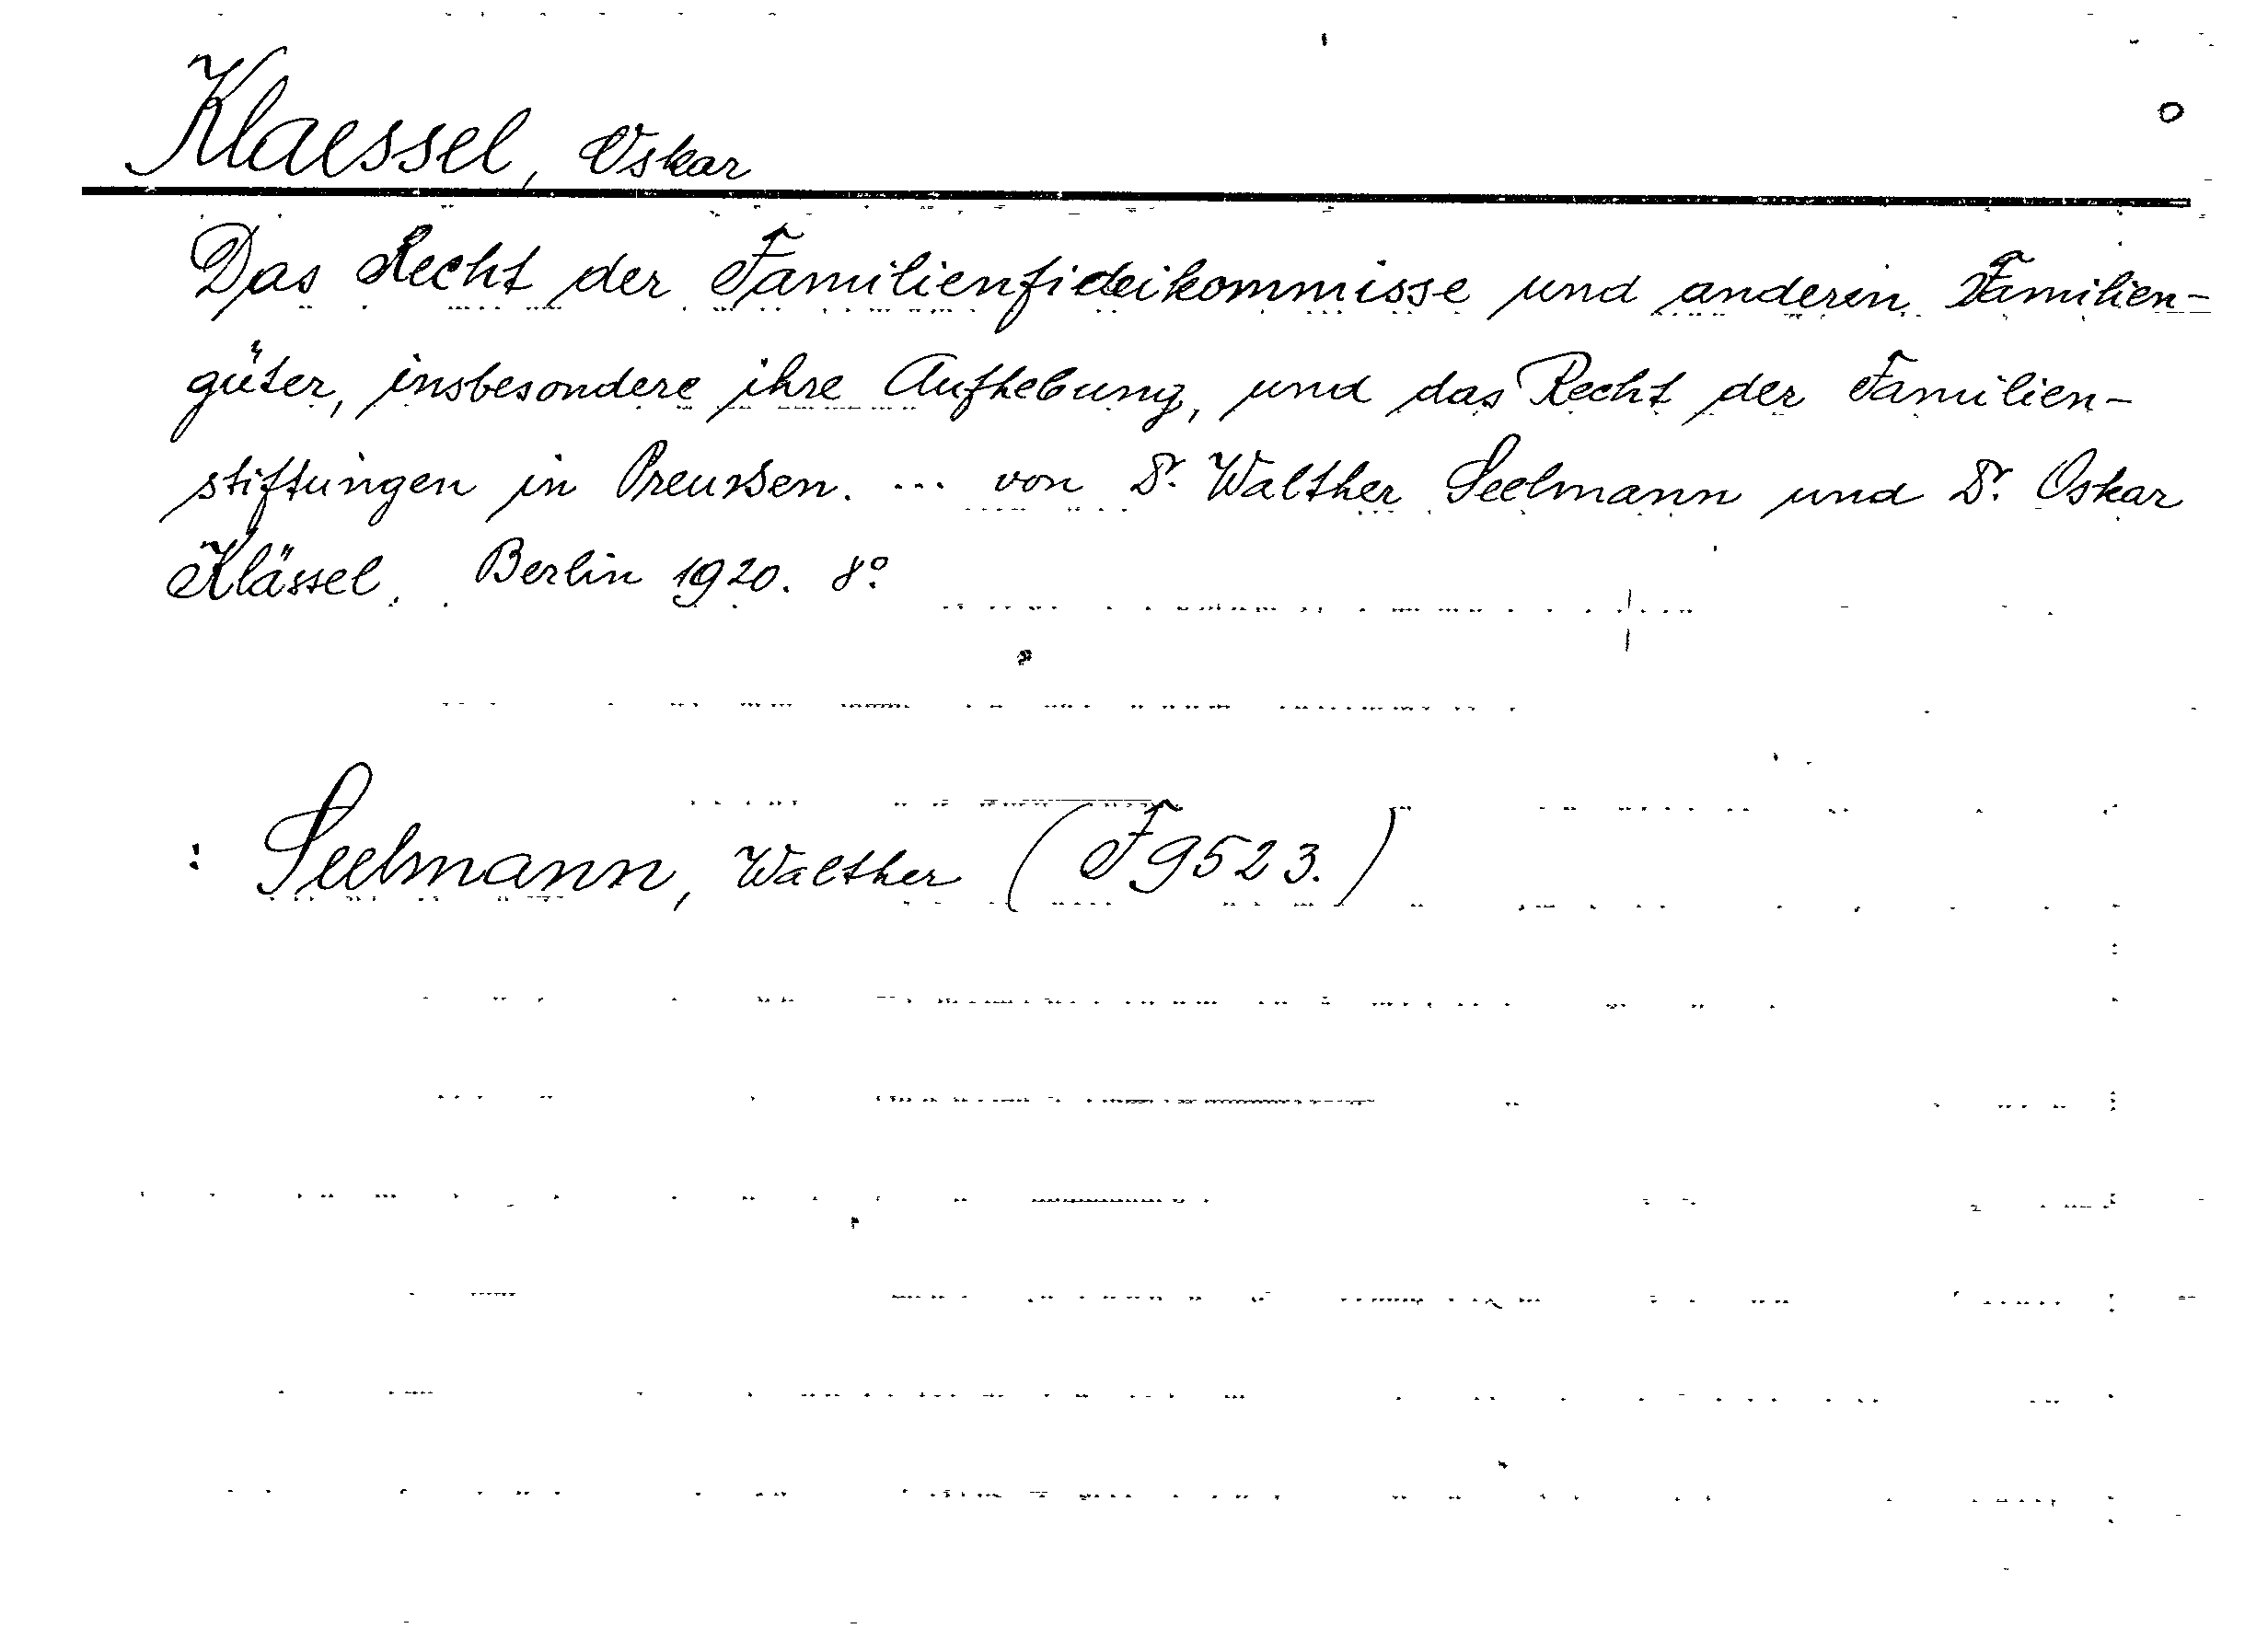 Klaessel, Oskar
Das Recht der Familienfideikommisse und anderen Familien-
güter, insbesondere ihre Aufhebung, und das Recht der Familien-
stiftungen in Preußen. ... von Dr. Walther Seelmann und Dr. Oskar
Klässel. Berlin 1920. 8°.
: Seelmann, Walther (F 9523.)